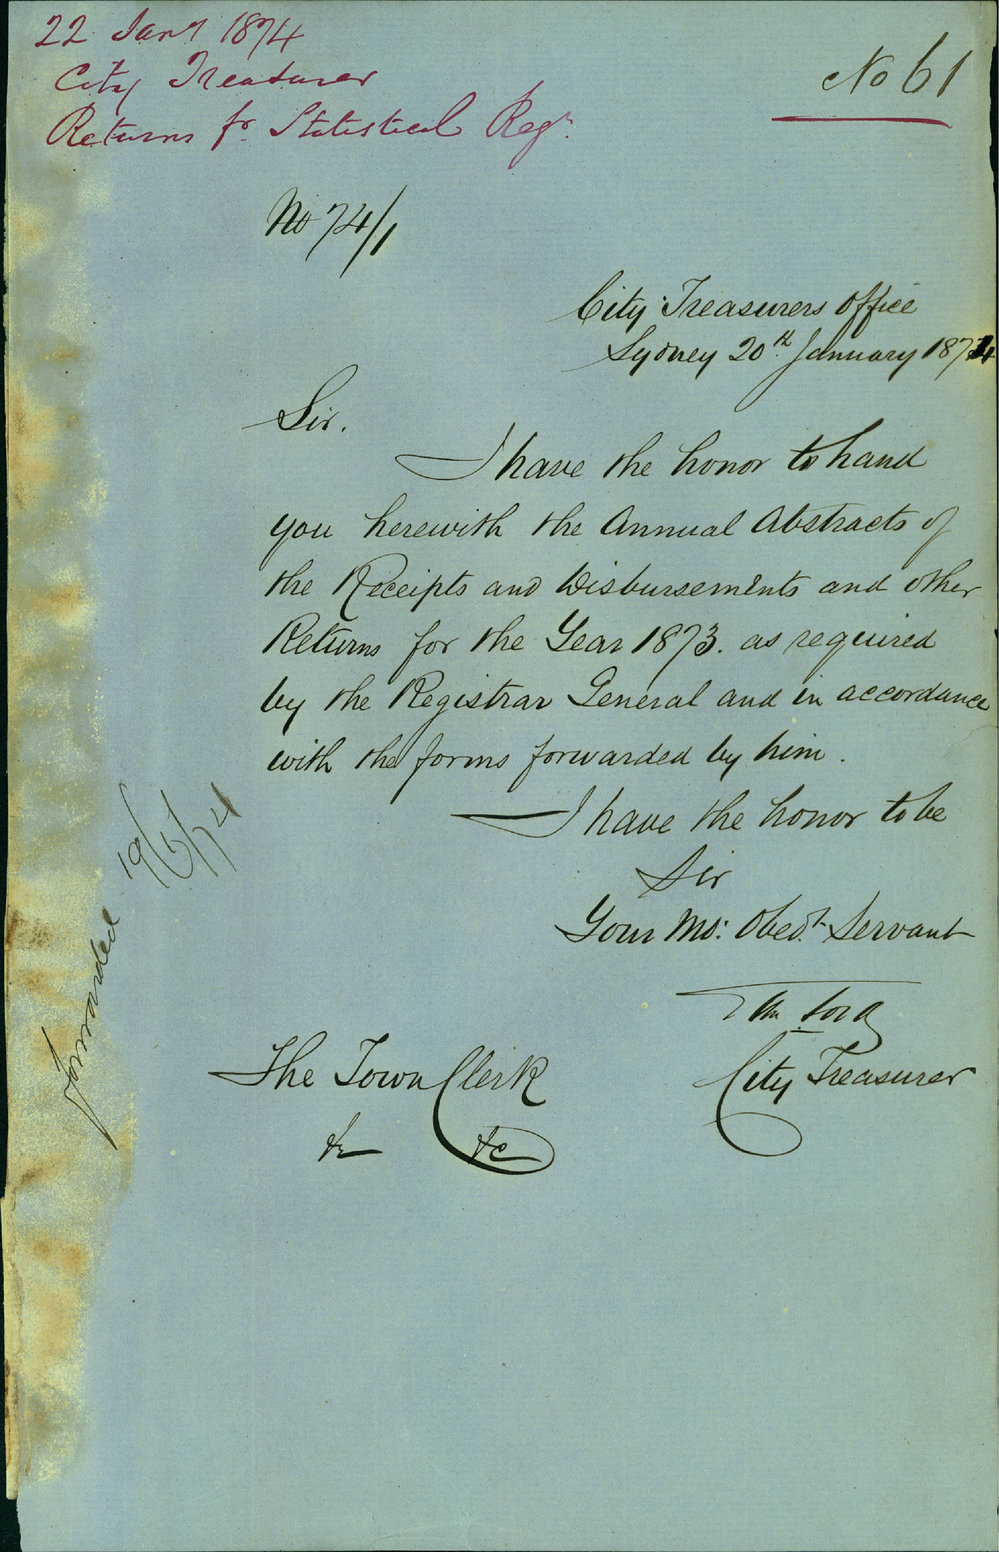 22 Jany 1874
City Treasurer
Returns for Statistical Regr.
No 61
No 74/1
City Treasurers Office
Sydney 20th January 1874
Sir.
I have the honor to hand
you herewith the Annual Abstracts of
the Receipts and Disbursements and other
Returns for the Year 1873. as required
by the Registrar General and in accordance
with the forms forwarded by him.
I have the honor to be
Sir
Your Mo: Obedt. Servant
City Treasurer
The Town Clerk
&c &c
forwarded